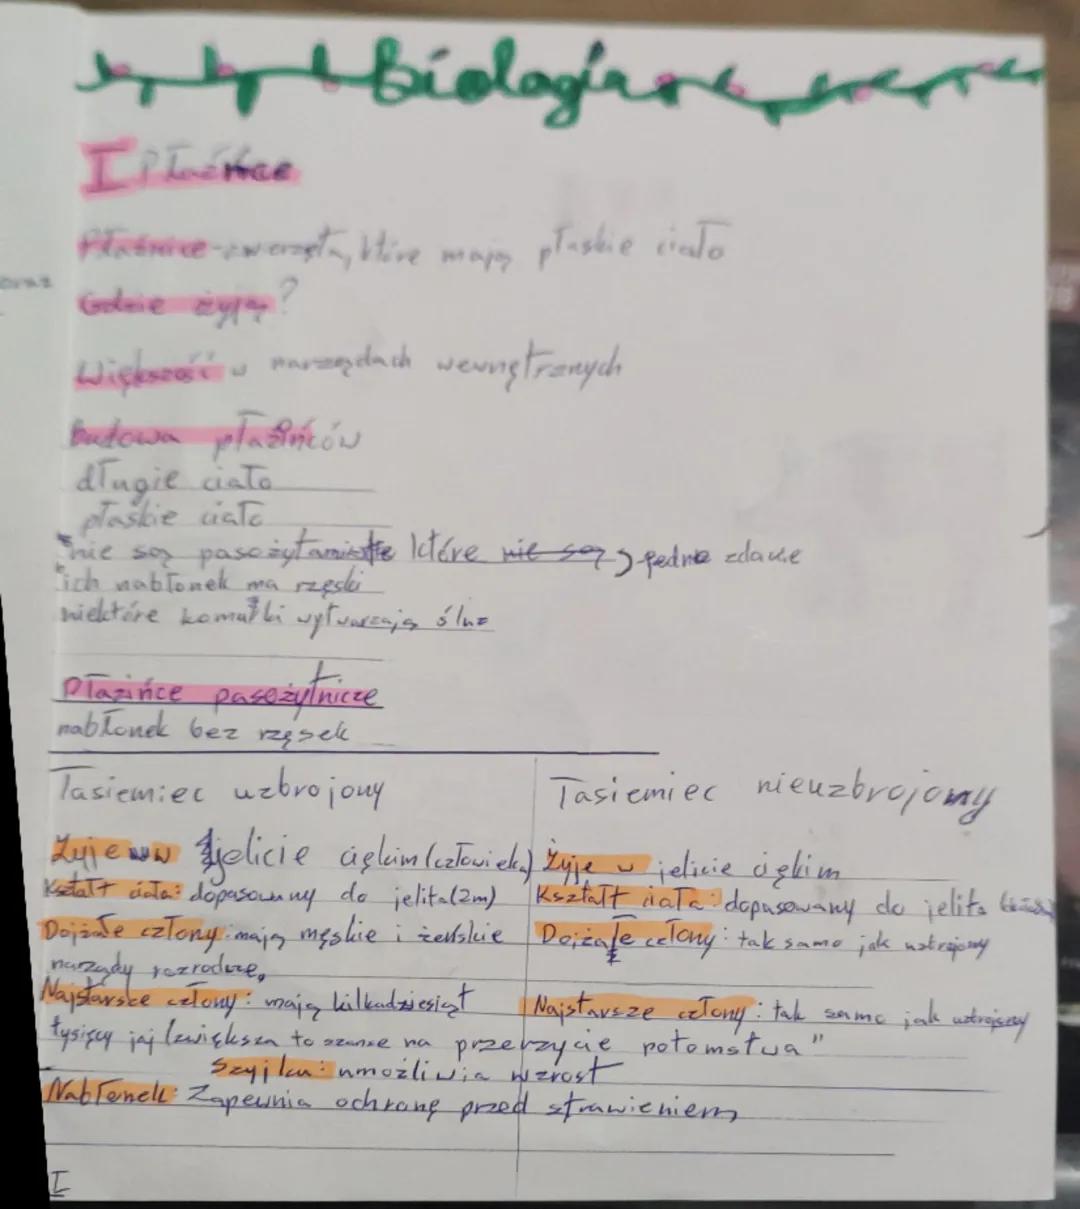 Biologia
I Płazińce
Płaźnice - zwierzęta, które mają płaskie ciało
oraz
Gdzie żyją?
Większość w narządach wewnętrznych
Budowa płazińców
długie ciało
płaskie ciało
nie są pasożytami które nie są jedno zdanie
ich nabłonek ma rzęski
niektóre komułki wytwarzają śluz
Płazińce pasożytnicze
nabłonek bez rzęsek
Tasiemiec uzbrojony
Żyje w jelicie ciękim (człowieka)
Kształt ciała: dopasowany do jelita (2m)
Dojżałe człony: mają męskie i żeńskie
narządy rozrodcze,
Najstarsze człony: mają kilkadziesiąt
tysięcy jaj (zwiększa to szanse na przetrzycie potomstwa"
Szyjka: umożliwia wzrost
Nabłonek: Zapewnia ochronę przed strawieniem
Tasiemiec nieuzbrojomy
Żyje w jelicie ciękim
Kształt ciała: dopasowany do jelita
Dojżałe człony: tak samo jak uzbrojony
Najstarsze człony: tak samo jak uzbrojony
I